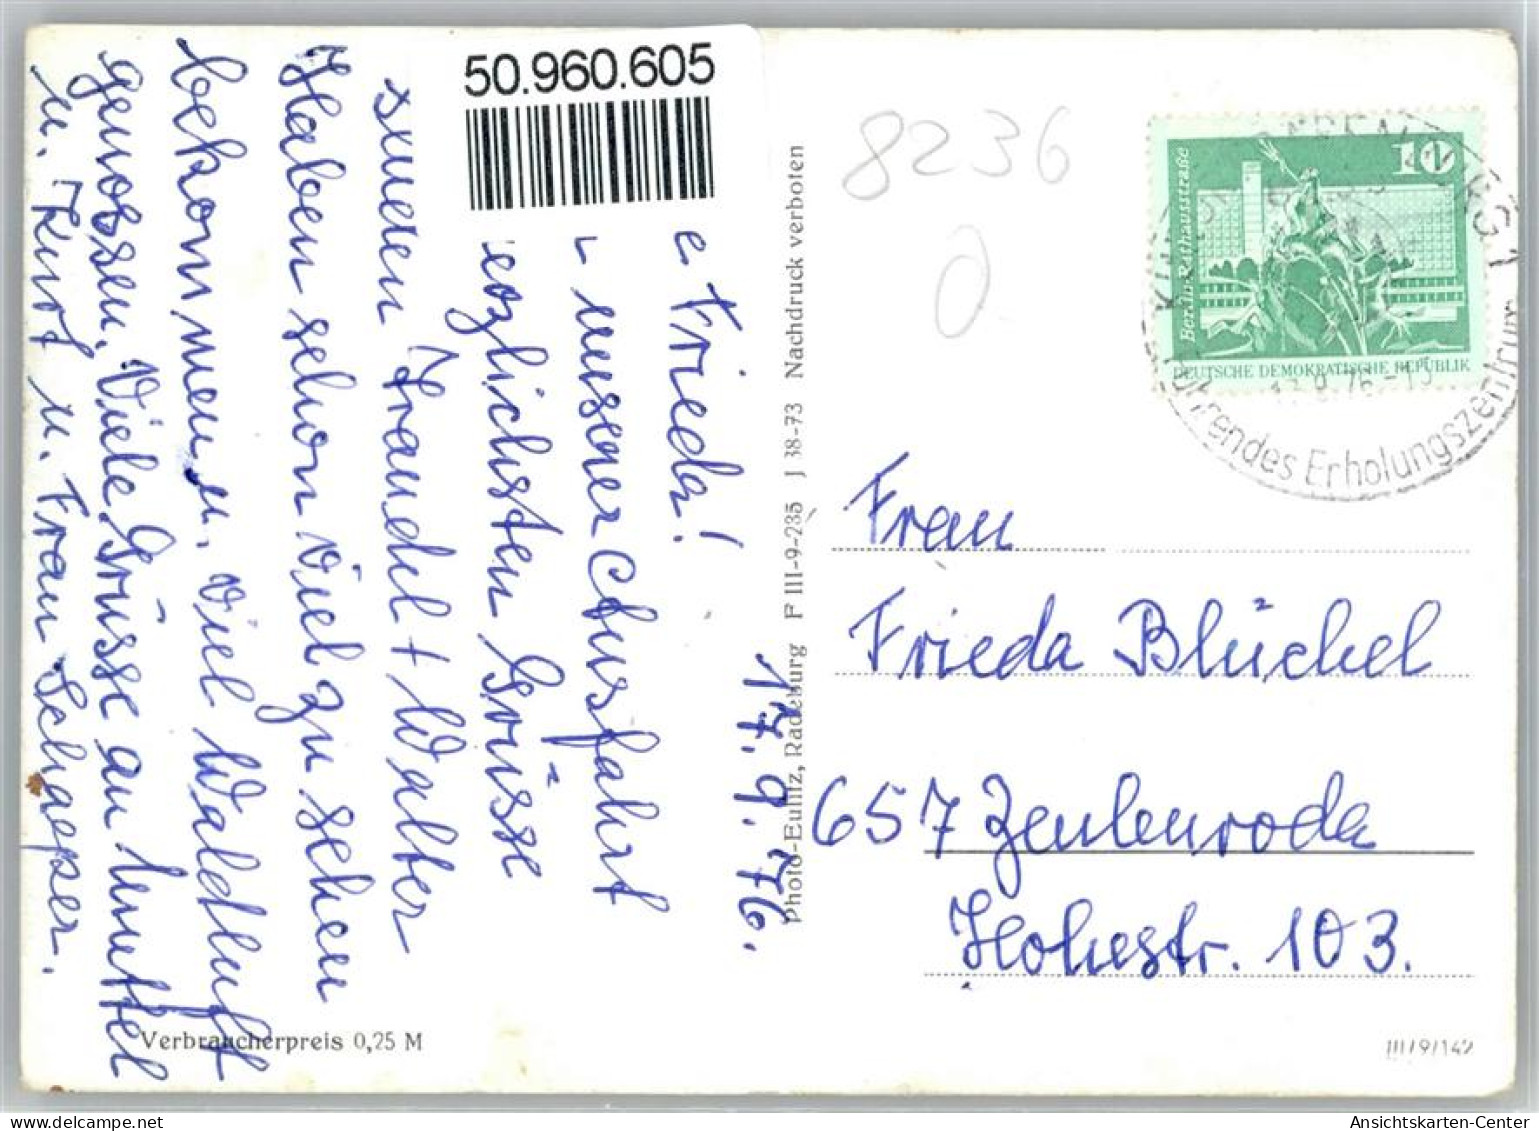 50.960.605
17.9.76.
e Frieda!
unserer Ausfahrt
herzlichsten Grüsse
senden Traudel + Walter
Haben schon viel zu sehen
bekommen u. viel Waldluft
genossen. Viele Grüsse an
u. Kurt u. Frau Schaeper.
Verbraucherpreis 0,25 M
Photo-Eulitz, Radeburg F III-9-235 J 38-73 Nachdruck verboten
8236
0
10
Berlin-Rathausstraße
DEUTSCHE DEMOKRATISCHE REPUBLIK
17.9.76-13
führendes Erholungszentrum
Frau
Frieda Blüchel
657 Zeulenroda
Hohestr. 103.
III/9/142
Ansichtskarten-Center